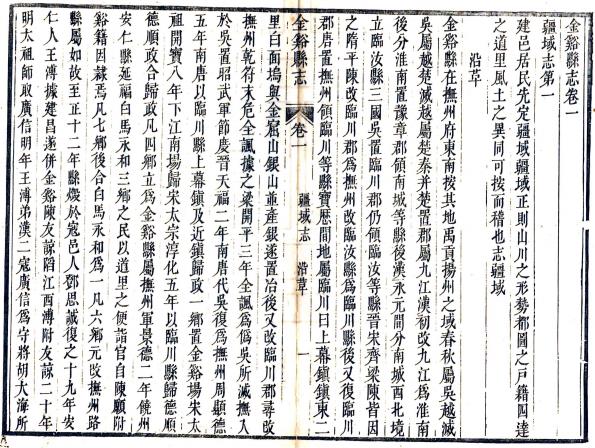 金谿縣志卷一
疆域志第一
建邑居民先定疆域疆域正則山川之形勢都圖之戸籍四達
之道里風土之異同可按而稽也志疆域
沿革
金谿縣在撫州府東南按其地禹貢揚州之域春秋屬吳越滅
吳屬越楚滅越屬楚秦并楚置郡屬九江漢初改九江爲淮南
後分淮南置豫章郡領南城等縣後漢永元間分南城西北境
立臨汝縣三國吳置臨川郡仍領臨汝等縣晉宋齊梁陳皆因
之隋平陳改臨川郡爲撫州改臨汝縣爲臨川縣後又復臨川
郡唐置撫州領臨川等縣寶曆間地屬臨川曰上幕鎮鎮東二
金谿縣志
卷一
疆域志 沿革
一
里白面塢與金窟山銀山並產銀遂置冶後又改臨川郡尋改
撫州乾符末危全諷據之梁開平三年全諷爲僞吳所滅撫入
於吳置昭武軍節度晉天福二年南唐代吳復爲撫州周顯德
五年南唐以臨川縣上幕鎮及近鎮歸政一鄉置金谿場宋太
祖開寶八年下江南場歸宋太宗淳化五年以臨川縣歸德順
德順政合歸政凡四鄉立爲金谿縣屬撫州軍景德二年饒州
安仁縣延福白馬永和三鄉之民以道里之便詣官自陳願附
谿籍因隸焉凡七鄉後合白馬永和爲一凡六鄉元改撫州路
縣屬如故至正十二年縣燬於寇邑人鄧思誠復之十九年安
仁人王溥據建昌遂併金谿陳友諒䧟江西溥附友諒二十年
明太祖師取廣信明年王溥弟漢二寇廣信爲守將胡大海所